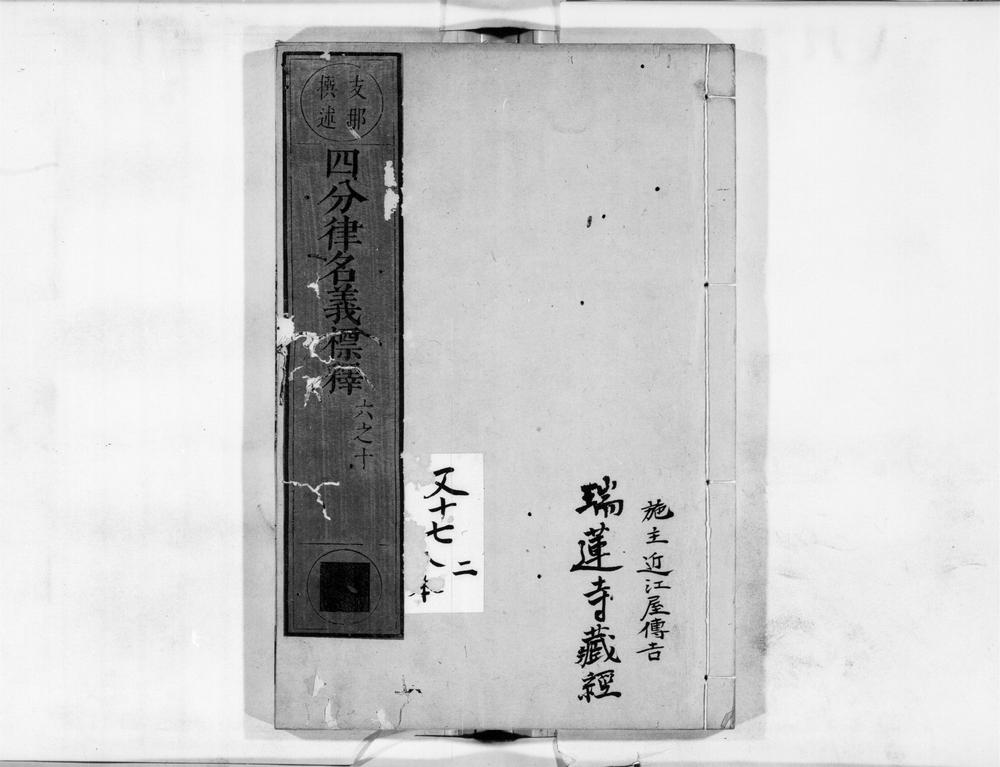 施主近江屋傳吉
瑞蓮寺藏經
又十七
二
支那
撰述
四分律名義標釋
六之十